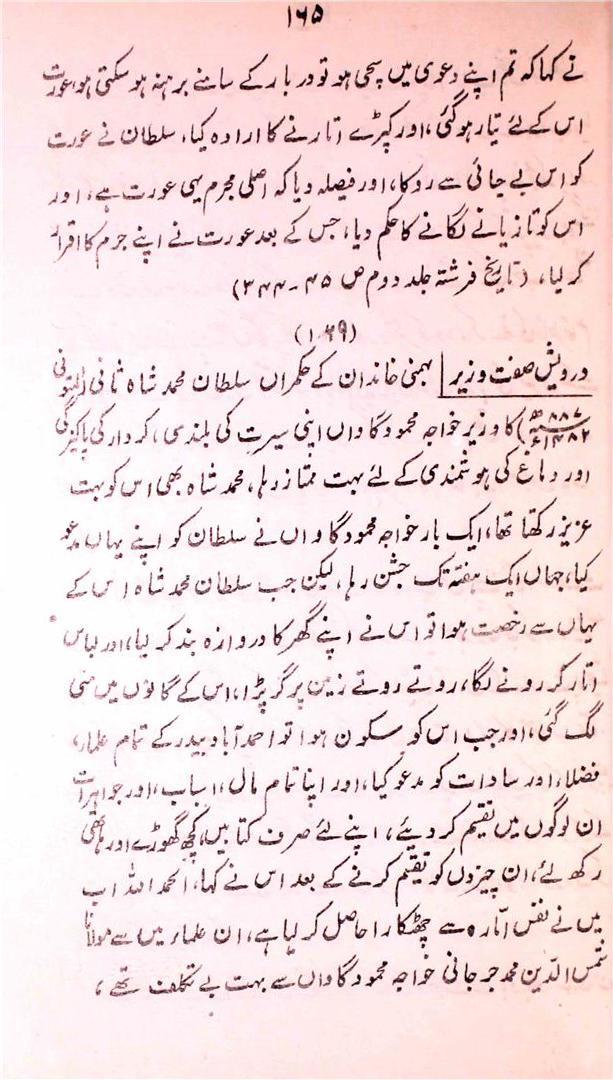 ۱۶۵
نے کہا کہ تم اپنے دعوی میں سچی ہو تو دربار کے سامنے برہنہ ہو سکتی ہو، عورت
اس کے لئے تیار ہوگئی، اور کپڑے اتارنے کا ارادہ کیا، سلطان نے عورت
کو اس بے حیائی سے روکا، اور فیصلہ دیا کہ اصلی مجرم یہی عورت ہے، اور
اس کو تازیانے لگانے کا حکم دیا، جس کے بعد عورت نے اپنے جرم کا اقرار
کر لیا، (تاریخ فرشتہ جلد دوم ص ۴۵-۳۴۴)
(۱۶۹)
درویش صفت وزیر بہمنی خاندان کے حکمراں سلطان محمد شاہ ثانی (المتوفی
۸۸۷ھ ۱۴۸۲ء) کا وزیر خواجہ محمود گاواں اپنی سیرت کی بلندی، کردار کی پاکیزگی
اور دماغ کی ہوشمندی کے لئے بہت ممتاز رہا، محمد شاہ بھی اس کو بہت
عزیز رکھتا تھا، ایک بار خواجہ محمود گاواں نے سلطان کو اپنے یہاں مدعو
کیا، جہاں ایک ہفتہ تک جشن رہا، لیکن جب سلطان محمد شاہ اس کے
یہاں سے رخصت ہوا تو اس نے اپنے گھر کا دروازہ بند کر لیا، اور لباس
اتار کر رونے لگا، روتے روتے زمین پر گر پڑا، اس کے گالوں میں مٹی
لگ گئی، اور جب اس کو سکون ہوا تو احمد آباد بیدر کے تمام علماء،
فضلاء، اور سادات کو مدعو کیا، اور اپنا تمام مال، اسباب، اور جواہرات
ان لوگوں میں تقیم کر دیئے، اپنے لئے صرف کتابیں، کچھ گھوڑے اور ہاتھی
رکھ لئے، ان چیزوں کو تقیم کرنے کے بعد اس نے کہا، الحمد اللہ اب
میں نے نفس امّارہ سے چھٹکارا حاصل کر لیا ہے، ان علماء میں سے مولانا
شمس الدّین محمد جرجانی خواجہ محمود گاواں سے بہت بے تکلف تھے،